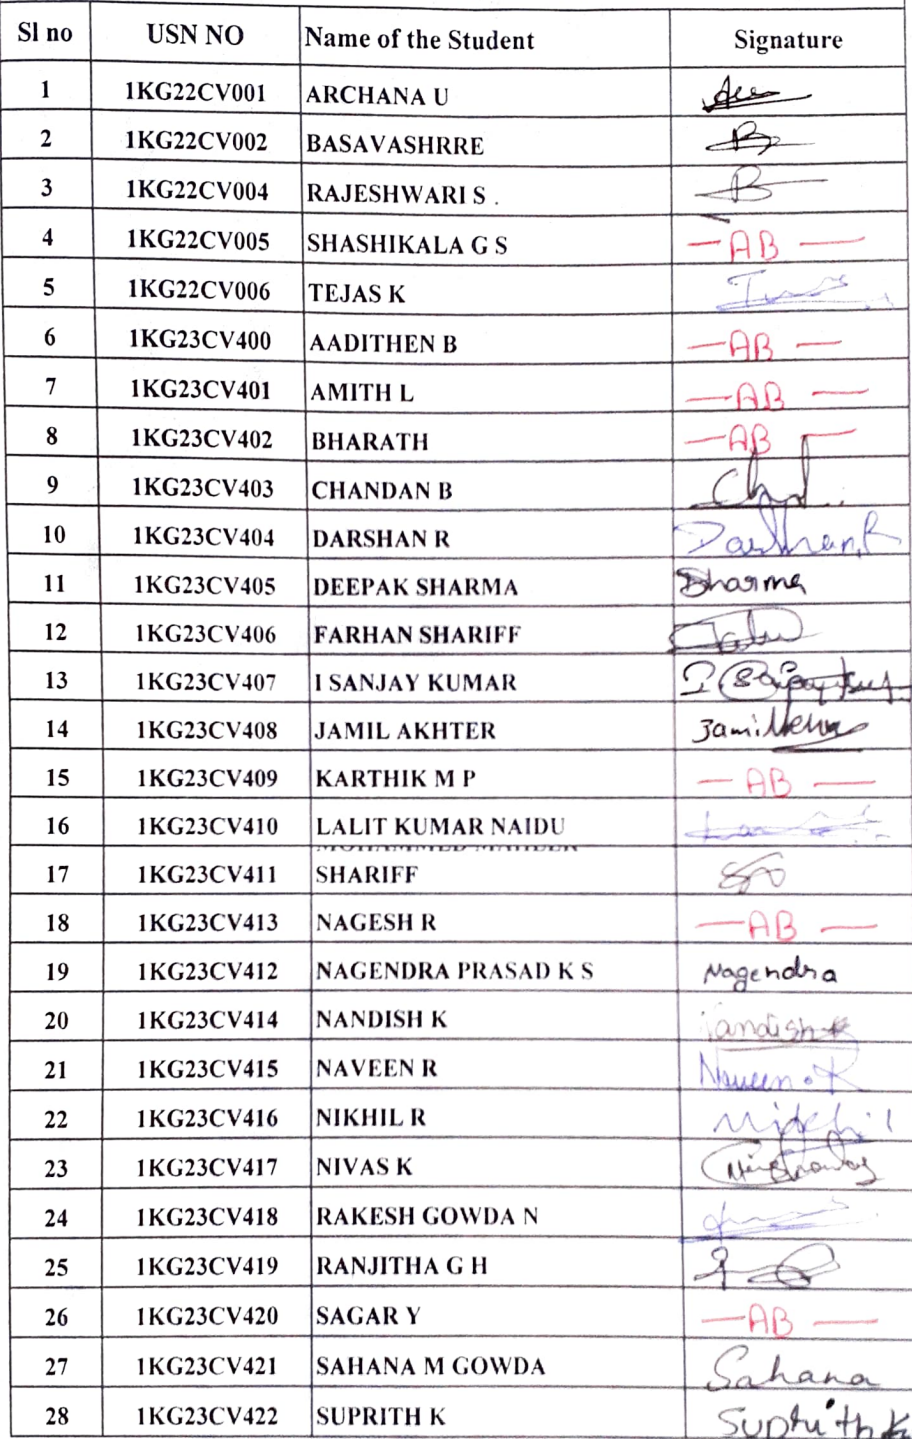 Sl no USN NO Name of the Student Signature
1 1KG22CV001 ARCHANA U
2 1KG22CV002 BASAVASHRRE
3 1KG22CV004 RAJESHWARI S .
4 1KG22CV005 SHASHIKALA G S — AB —
5 1KG22CV006 TEJAS K
6 1KG23CV400 AADITHEN B — AB —
7 1KG23CV401 AMITH L — AB —
8 1KG23CV402 BHARATH — AB —
9 1KG23CV403 CHANDAN B
10 1KG23CV404 DARSHAN R Darshan.R
11 1KG23CV405 DEEPAK SHARMA Sharma
12 1KG23CV406 FARHAN SHARIFF
13 1KG23CV407 I SANJAY KUMAR
14 1KG23CV408 JAMIL AKHTER
15 1KG23CV409 KARTHIK M P — AB —
16 1KG23CV410 LALIT KUMAR NAIDU
MOHAMMED MAHEER
17 1KG23CV411 SHARIFF
18 1KG23CV413 NAGESH R — AB —
19 1KG23CV412 NAGENDRA PRASAD K S Nagendra
20 1KG23CV414 NANDISH K Nandish K
21 1KG23CV415 NAVEEN R Naveen.R
22 1KG23CV416 NIKHIL R Nikhil
23 1KG23CV417 NIVAS K
24 1KG23CV418 RAKESH GOWDA N
25 1KG23CV419 RANJITHA G H
26 1KG23CV420 SAGAR Y — AB —
27 1KG23CV421 SAHANA M GOWDA Sahana
28 1KG23CV422 SUPRITH K Suprith K